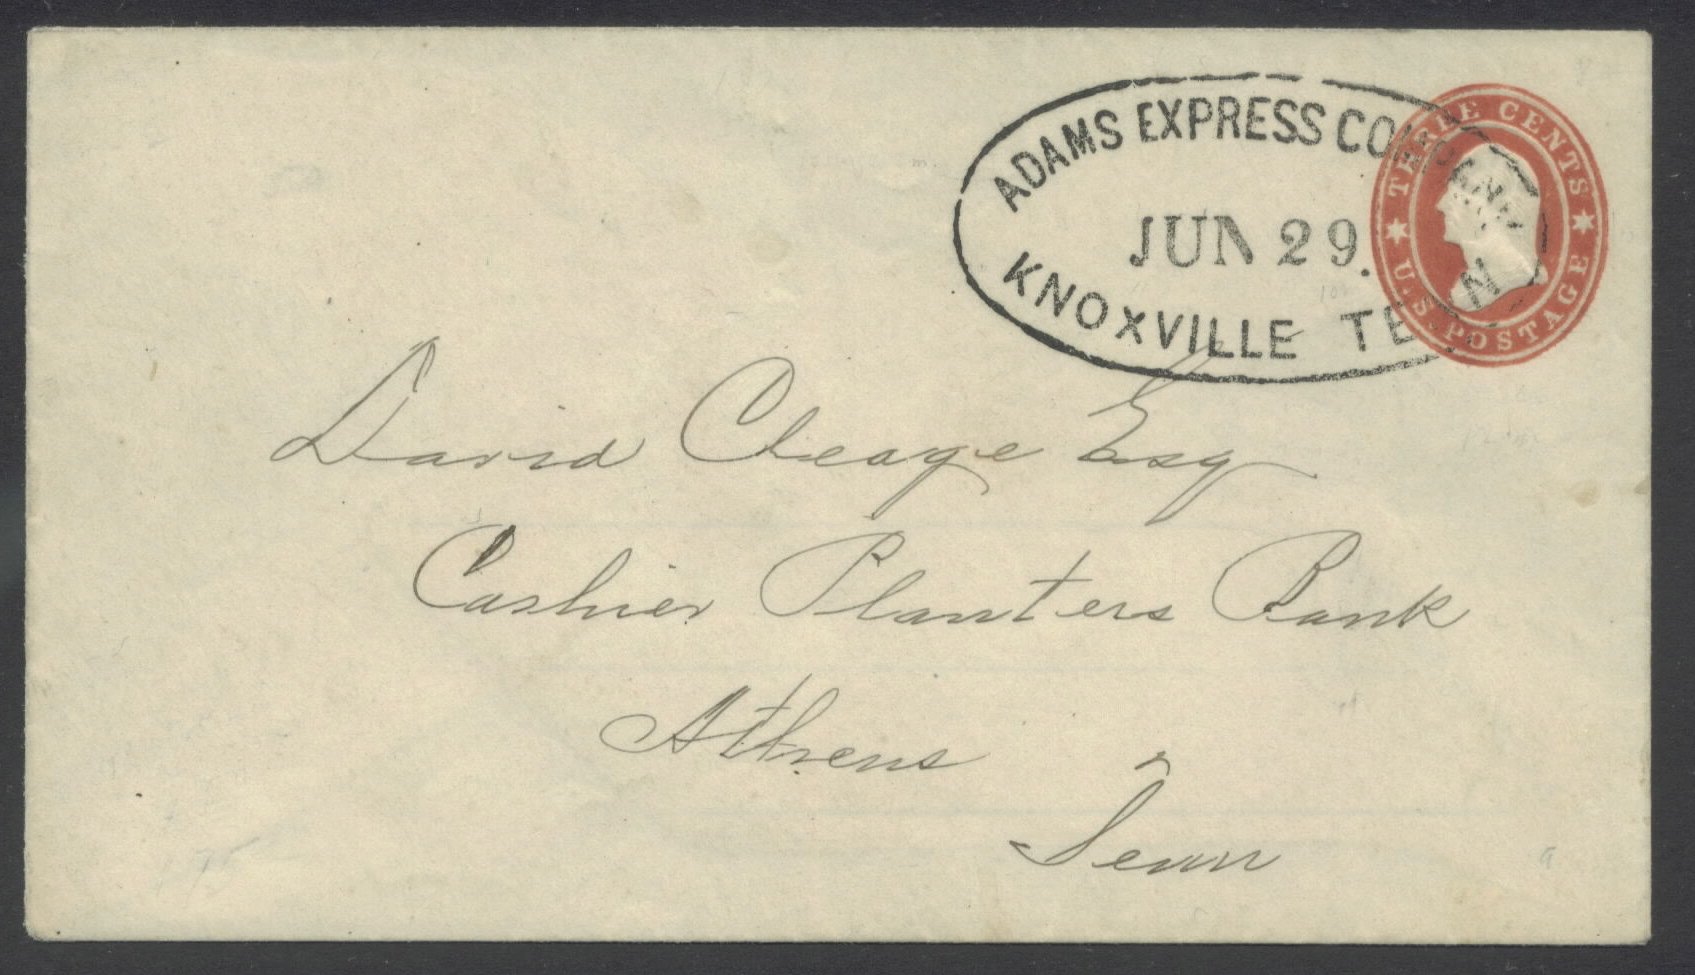 ADAMS EXPRESS COMPANY
JUN 29.
KNOXVILLE TENN
THREE CENTS
U.S. POSTAGE
David Cleage Esq
Cashier Planters Bank
Athens
Tenn